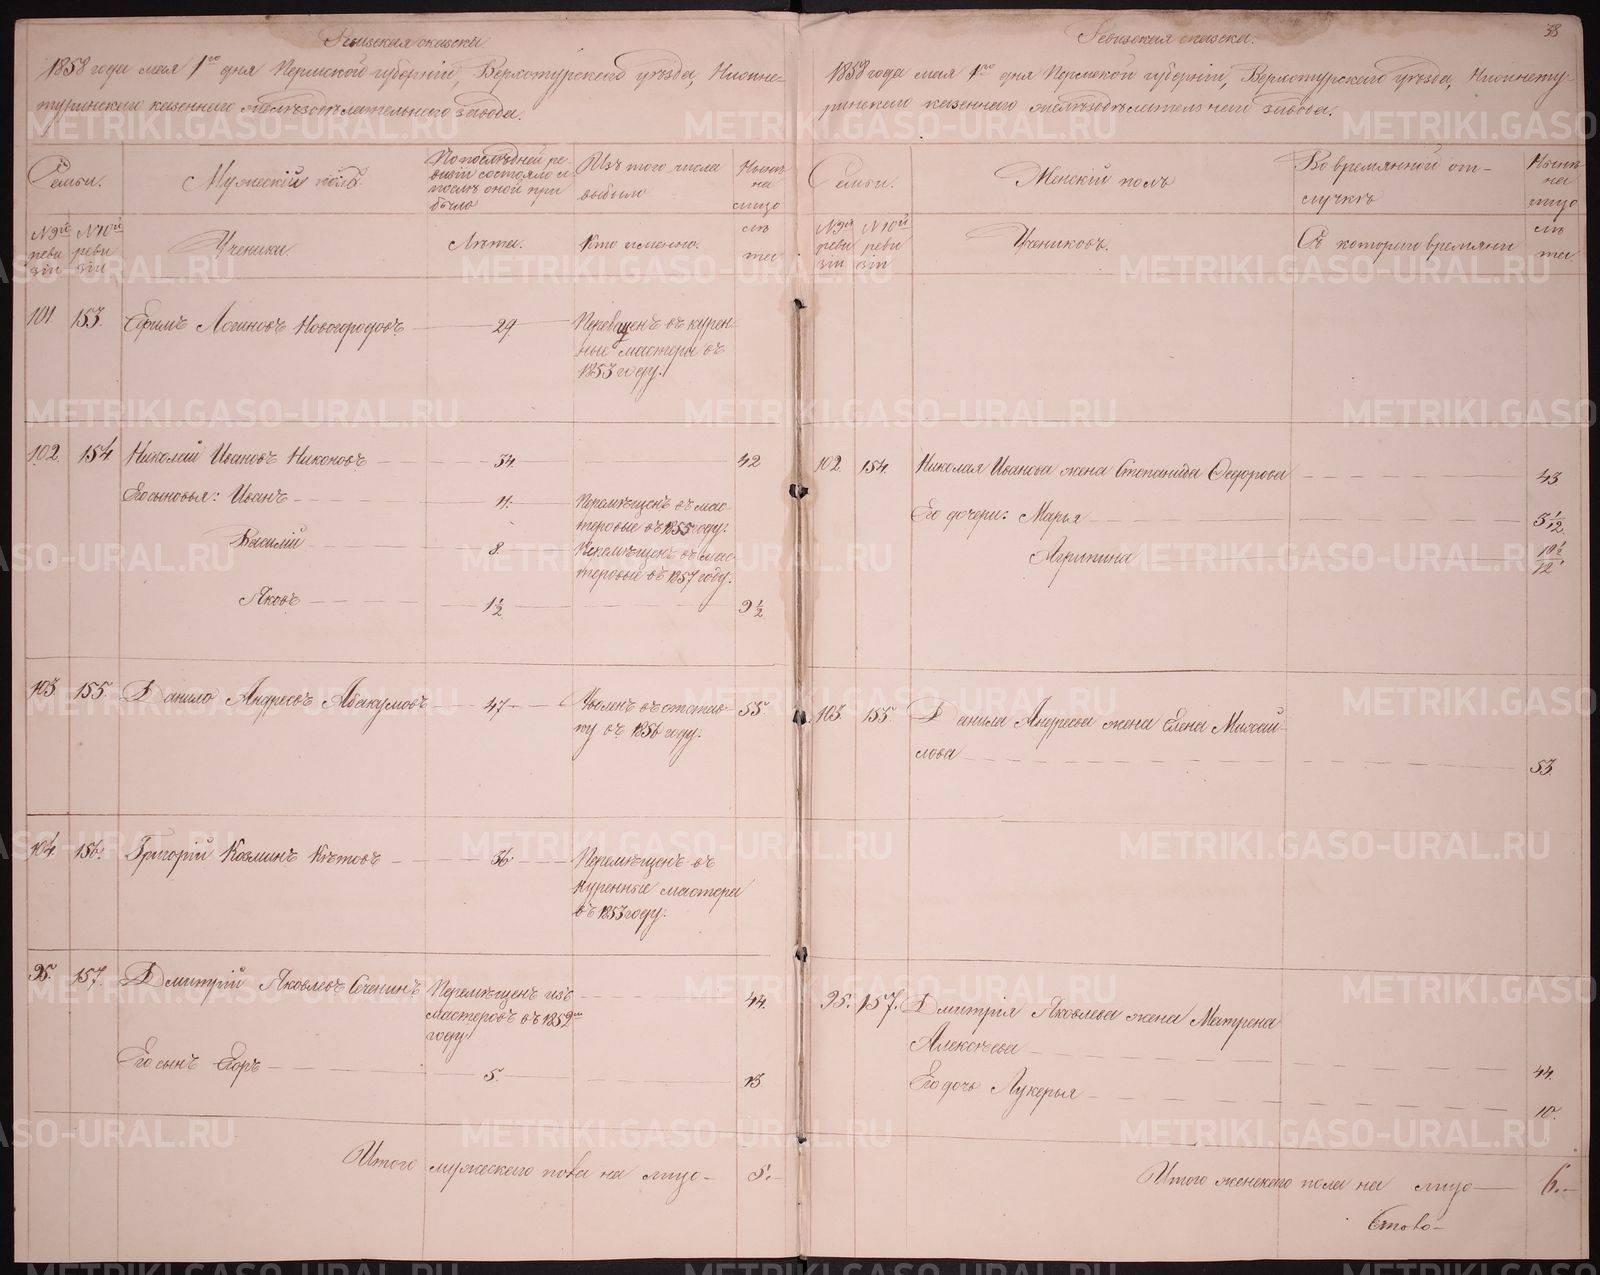 Ревизская сказка.
1858 года мая 1го дня Пермской губерніи, Верхотурскаго уѣзда, Нижне-
туринскаго казеннаго желѣзодѣлательнаго завода.
Семьи.
Мужескій полъ.
По послѣдней ре-
визіи состояло и
послѣ оной при
было
Изъ того числа
выбыло
Нынѣ
на
лицо
№ 9й
реви
зіи
№ 10й
реви
зіи
Ученики.
Лѣта.
Кто именно.
лѣ
та
101. 153. Ефимъ Логиновъ Новогородовъ 29 Перемѣщенъ въ курен-
ные мастеры въ
1853 году.
102. 154. Николай Ивановъ Никоновъ 34. 42
Его сыновья: Иванъ 11. Перемѣщенъ въ мас-
теровые въ 1855 году.
Василій 8. Перемѣщенъ въ мас-
теровые въ 1857 году.
Яковъ 1 1/2 9 1/2
103. 155. Данило Андреевъ Абакумовъ 47 Уволенъ въ отстав-
ку въ 1856 году. 55.
104. 156. Григорій Козминъ Кѣтовъ 36. Перемѣщенъ въ
куренные мастера
въ 1853 году.
95. 157. Дмитрій Яковлевъ Сеченинъ Перемѣщенъ изъ
мастеровъ въ 1852мъ
году. 44.
Его сынъ Егоръ 5. 13
Итого мужескаго пола на лицо 5.
38
Ревизская сказка.
1858 года мая 1го дня Пермской губерніи, Верхотурскаго уѣзда, Нижнету-
ринскаго казеннаго желѣзодѣлательнаго завода.
Семьи.
Женскій полъ
Во временной от-
лучкѣ
Нынѣ
на
лицо
№ 9й
реви
зіи
№ 10й
реви
зіи
Учениковъ.
Съ котораго времяни
лѣ
та
102. 154. Николая Иванова жена Степанида Федорова 43
Его дочери: Марья 3 1/12
Агрипина
103. 155 Данила Андреева жена Елена Михай-
лова 53.
95. 157. Дмитрія Яковлева жена Матрена
Алексѣева 44.
Его дочь Лукерья 10.
Итого женскаго пола на лицо 6.
METRIKI.GASO-URAL.RU